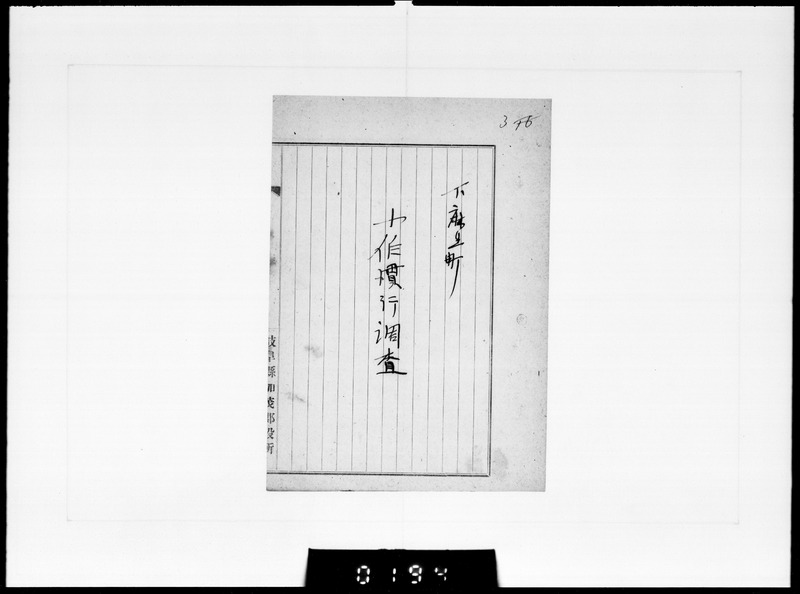 下麻生町
小作慣行調査
岐阜縣加茂郡役所
0194